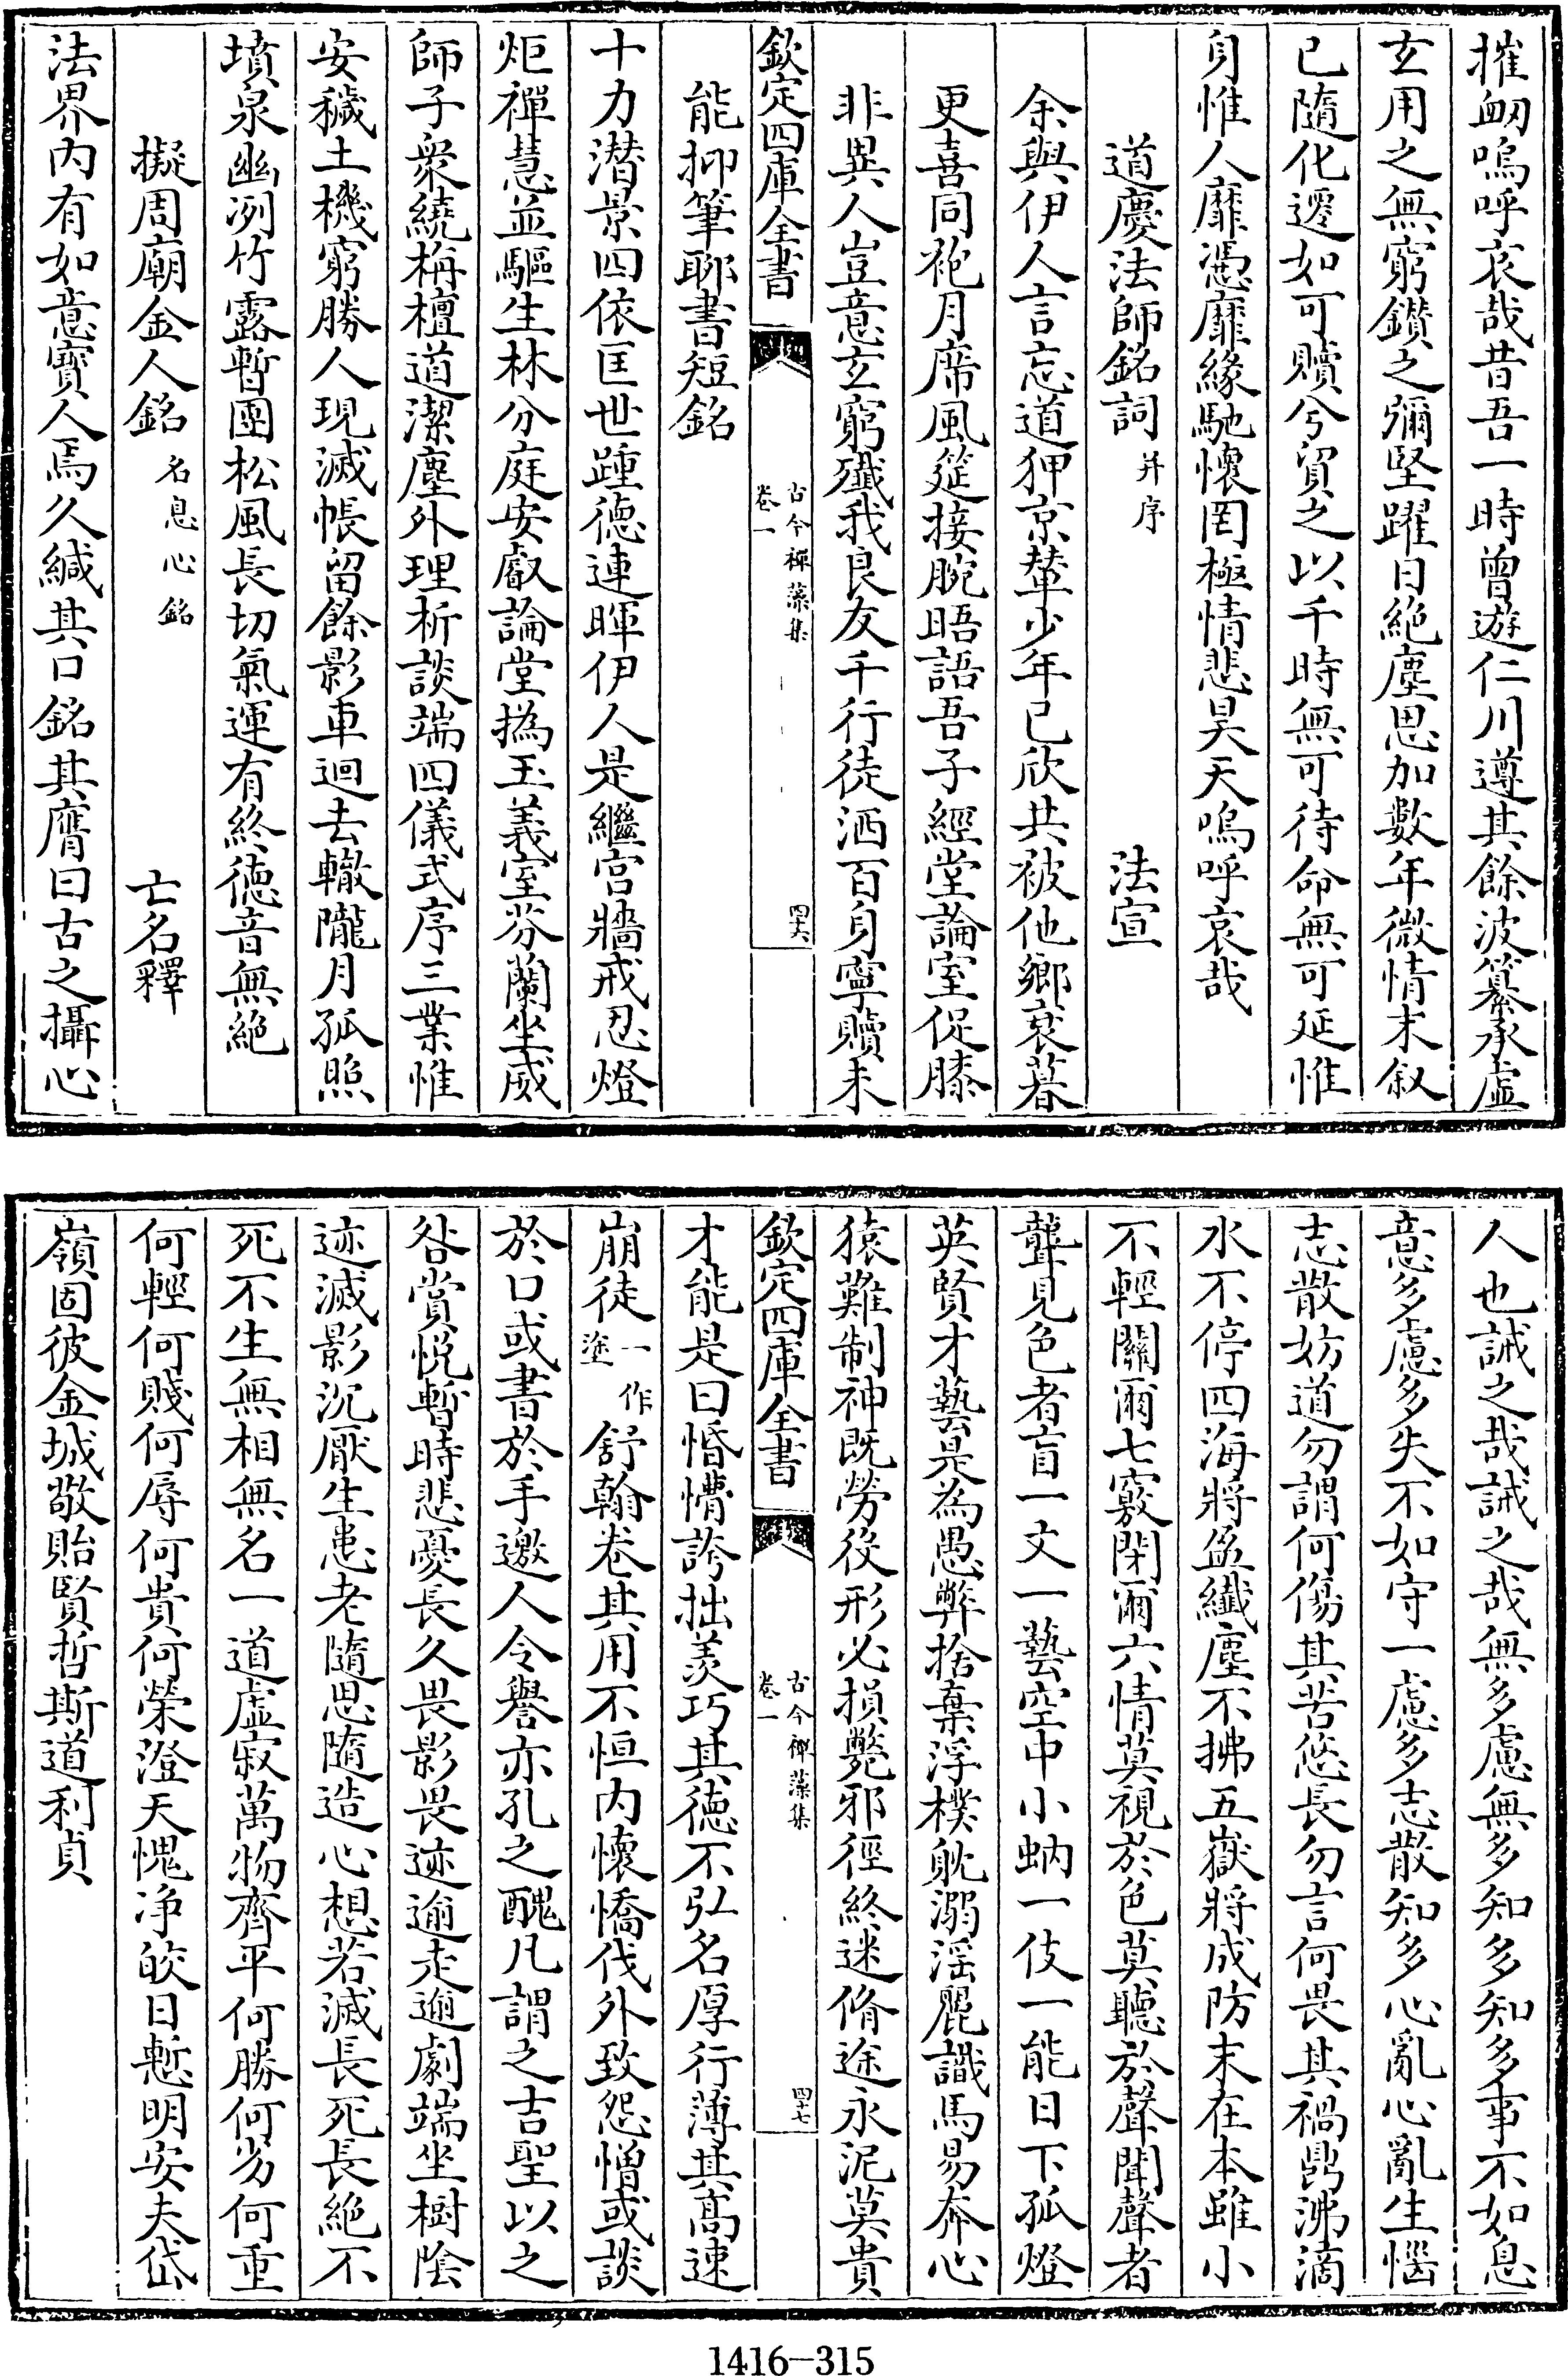 摧衂嗚呼哀哉昔吾一時曾遊仁川遵其餘波纂承虛
玄用之無窮鑽之彌堅躍日絕塵思加數年微情末叙
已隨化遷如可贖兮貿之以千時無可待命無可延惟
身惟人靡憑靡緣馳懷罔極情悲昊天嗚呼哀哉
道慶法師銘詞 并序 法宣
余與伊人言忘道狎京輦少年已欣共被他鄉衰暮
更喜同袍月席風筵接腕晤語吾子經堂論室促膝
非異人豈意玄窮殲我良友千行徒洒百身寧贖未
欽定四庫全書
古今禪藻集
卷一
四十六
能抑筆聊書短銘
十力潜景四依匡世踵德連暉伊人是繼宫牆戒忍燈
炬禪慧並驅生林分庭安叡論堂撝玉義室芬蘭坐威
師子衆繞栴檀道潔塵外理析談端四儀式序三業惟
安穢土機窮勝人現滅帳留餘影車迴去轍隴月孤照
墳泉幽冽竹露暫團松風長切氣運有終徳音無絶
擬周廟金人銘 名息心銘 亡名釋
法界内有如意寳人焉久緘其口銘其膺曰古之攝心
人也誡之哉誡之哉無多慮無多知多知多事不如息
意多慮多失不如守一慮多志散知多心亂心亂生惱
志散妨道勿謂何傷其苦悠長勿言何畏其禍鼎沸滴
水不停四海將盈纖塵不拂五嶽將成防末在本雖小
不輕關爾七竅閉爾六情莫視於色莫聽於聲聞聲者
聾見色者盲一文一藝空中小蚋一伎一能日下孤燈
英賢才藝是為愚弊捨棄浮樸躭溺滛麗識馬易奔心
猿難制神既勞役形必損斃邪徑終迷脩途永泥莫貴
欽定四庫全書
古今禪藻集
卷一
四十七
才能是曰惛懵誇拙羡巧其徳不弘名厚行薄其髙速
崩徒 一作塗 舒翰卷其用不恒内懐憍伐外致怨憎或談
於口或書於手邀人令譽亦孔之醜凡謂之吉聖以之
咎賞悦暫時悲憂長久畏影畏迹逾走逾劇端坐樹陰
迹滅影沉厭生患老隨思隨造心想若滅長死長絶不
死不生無相無名一道虛寂萬物齊平何勝何劣何重
何輕何賤何辱何貴何榮澄天愧净皎日慙明安夫岱
嶺固彼金城敬貽賢哲斯道利貞
1416-315